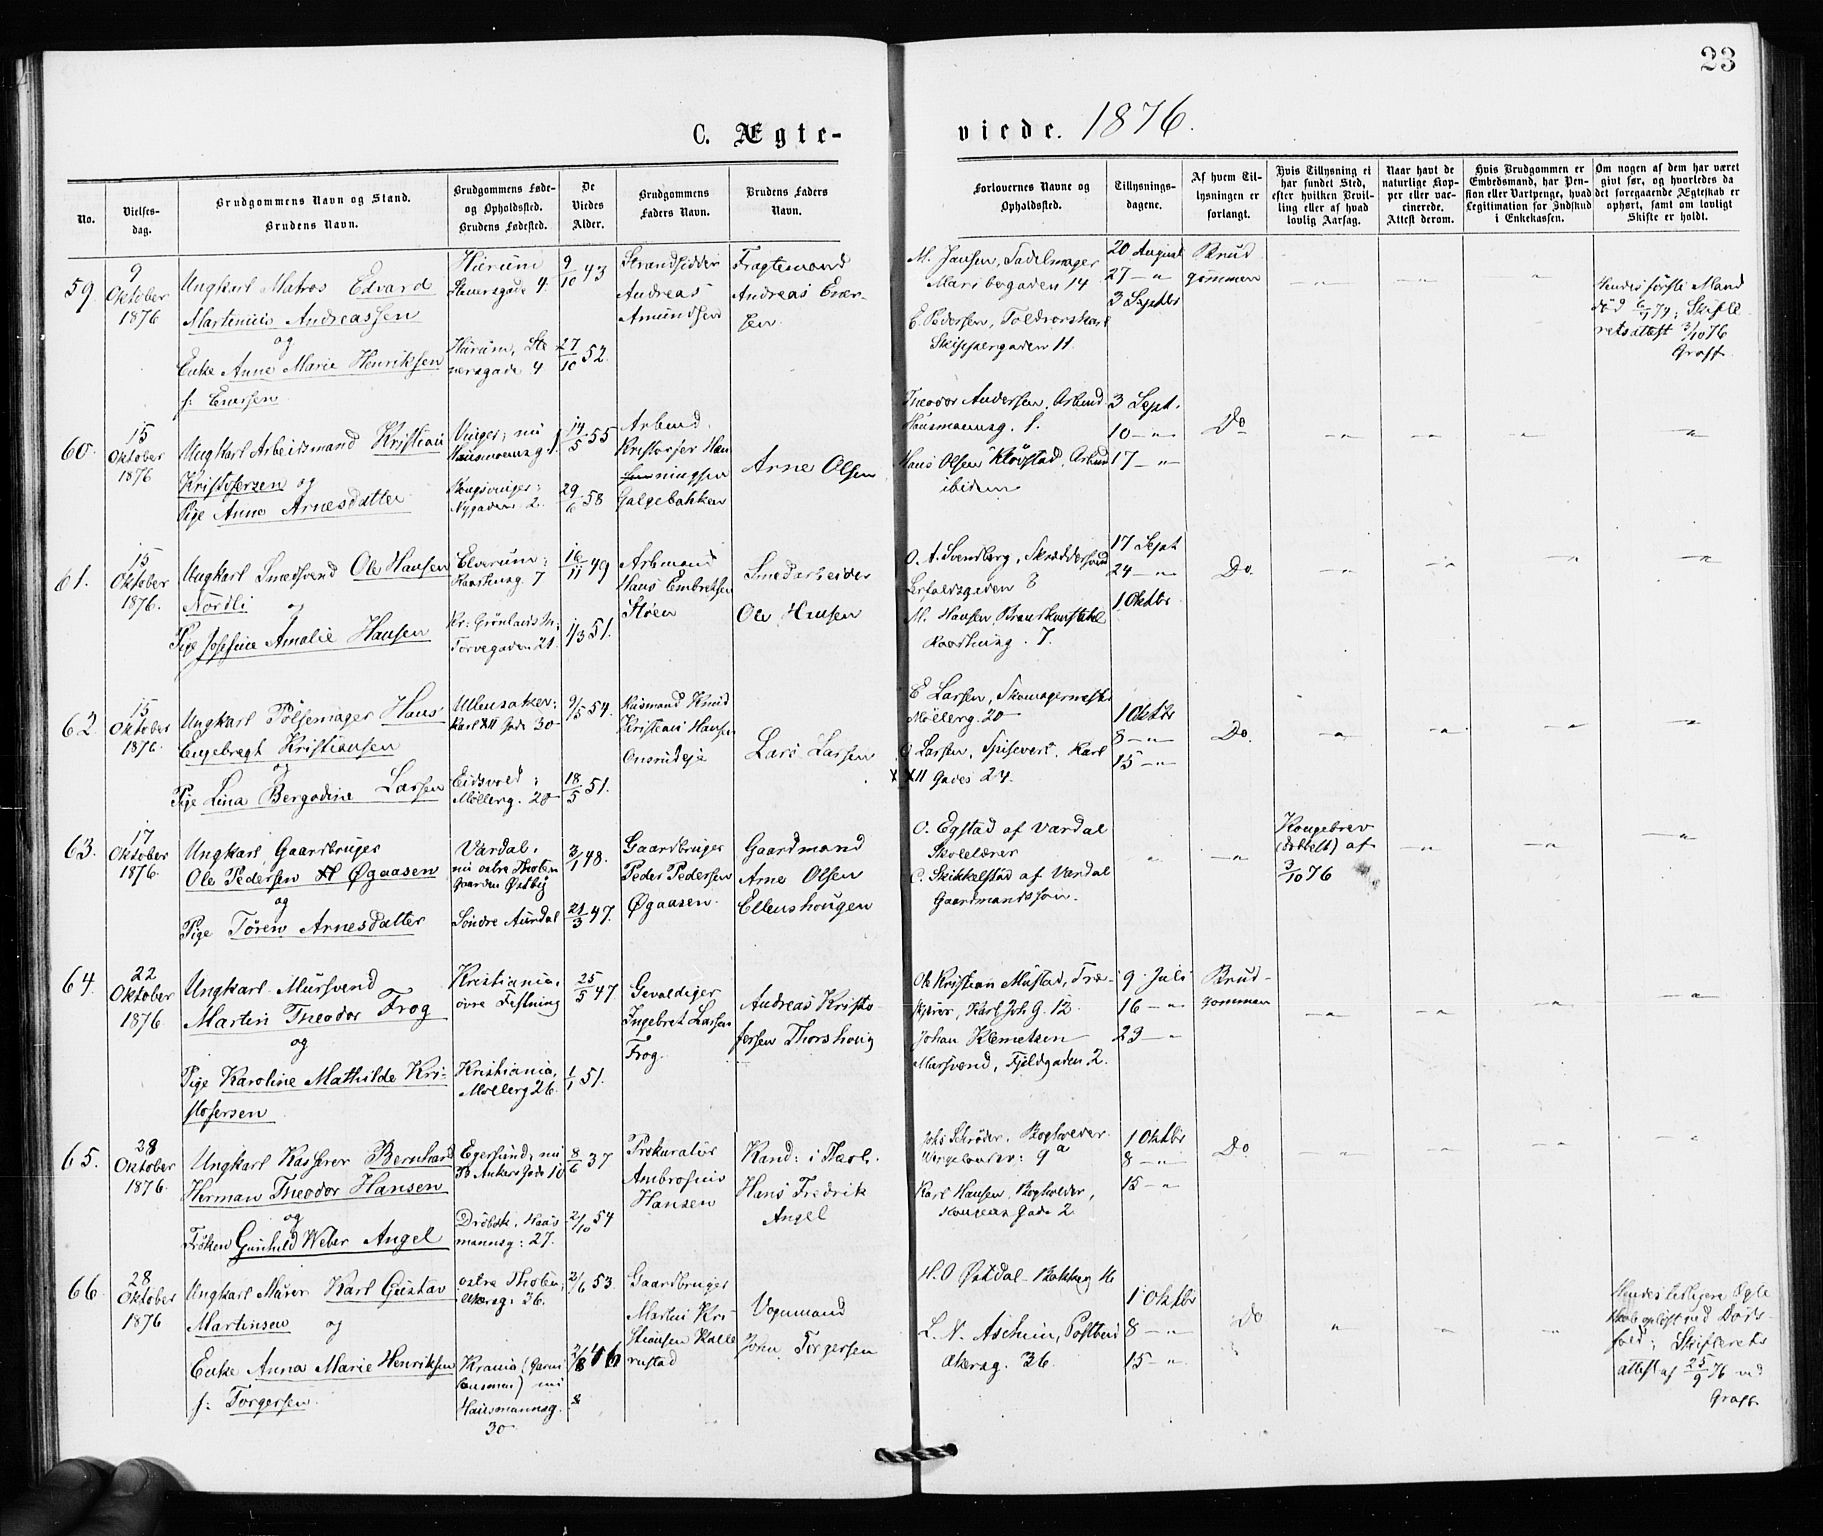 23
C. Ægte-
viede. 1876.
No.
Vielses-
dag.
Brudgommens Navn og Stand.
Brudens Navn.
Brudgommens Føde-
og Opholdssted.
Brudens Fødested.
De
Viedes
Alder.
Brudgommens
Faders Navn.
Brudens Faders
Navn.
Forlovernes Navne og
Opholdssted.
Tillysnings-
dagene.
Af hvem Til-
lysningen er
forlangt.
Hvis Tillysning ei
har fundet Sted,
efter hvilken Bevil-
ling eller af hvad
lovlig Aarsag.
Naar havt de
naturlige Kop-
per eller vac-
cinerede.
Attest derom.
Hvis Brudgommen er
Embedsmand, har Pen-
sion eller Vartpenge, hvad
Legitimation for Indskud
i Enkekassen.
Om nogen af dem har været
givt før, og hvorledes da
det foregaaende Ægteskab er
ophørt, samt om lovligt
Skifte er holdt.
59
9
Oktober
1876
Ungkarl Matros Edvard
Martinius Andreassen
og
Enke Anne Marie Henriksen
f: Enersen
Hurum
Stenersgade 4.
Hurum, Ste
nersgade 4
9/10 43
27/10 52.
Strandsidder
Andreas
Amundsen
Fragtemand
Andreas Ener-
sen.
M. Jansen, Sadelmager
Mariboegaden 14
E. Pedersen, Toldroerskarl
Skippergaden 11.
20 August
27 - "
3 Septbr
Brud
gommen
- " -
- " -
"
Hendes förste Mand
död 6/1 74; Skifte
retsattest 3/10 76
Graff.
60.
15
Oktober
1876
Ungkarl Arbeidsmand Kristian
Kristofersen og
Pige Anne Arnesdatter
Vinger; nu
Hausmannsg. 1
Kongsvinger;
Nygaden 2.
14/5 55
29/6 58
Arbmd.
Kristoffer Han
ningsen
Galgebakken
Arne Olsen
Theodor Andersen, Arbmd
Hausmannsg. 1.
Hans Olsen Klövstad, Arbmd
ibidem
3 Sept.
10 - "
17 - "
Do
- " -
- " -
- " -
- " -
61.
15
Oktober
1876.
Ungkarl Smedsvend Ole Hansen
Nordli
og
Pige Josefine Amalie Hansen
Elverum;
Raadhusg. 7
Kr: Grönlands M:
Torvegaden 21.
16/11 49
1/3 51.
Arbmand
Hans Embretsen
Stöen
Smedarbeider
Ole Hansen
O. A. Svendberg, Skræddersvend
Lerfaldsgaden 8
M. Hansen, Brandkonstabel
Raadhusg. 7.
17 Sept
24 - "
1 Oktbr
Do.
- " -
- " -
- " -
- " -
62.
15
Oktober
1876.
Ungkarl Pölsemager Hans
Engebregt Kristiansen
og
Pige Lina Bergodine Larsen
Ullensaker;
Karl XII Gade 30
Eidsvold;
Möllerg. 20
9/5 54.
18/5 51.
Husmand Knud
Kristian Hansen
Onsrudeje
Lars Larsen
E Larsen, Skomagermester
Möllerg. 20
O Larsen, Spisevert. Karl
XII Gades 24.
1 Oktbr
8 - "
15 - "
Do.
- " -
- " -
- " -
- " -
63.
17
Oktober
1876.
Ungkarl, Gaardbruger
Ole Pedersen Øgaasen
og
Pige Tören Arnesdatter
Vardal;
nu östre Thoten
Gaarden Østby
Söndre Aurdal
3/1 48.
21/3 47.
Gaardbruger
Peder Pedersen
Øgaasen.
Gaardmand
Arne Olsen
Ellenshougen
O. Egstad af Vardal
Skolelærer
C. Skikkelstad af Vardal
Gaardmandssøn.
"
- " -
Kongebrev
(dobbelt) af
3/10 76
- " -
- " -
- " -
64.
22
Oktober
1876
Ungkarl Mursvend
Martin Theodor Frog
og
Pige Karoline Mathilde Kri-
stofersen
Kristiania,
övre Fæstning
Kristiania,
Möllerg 26
25/5 47.
1/1 51.
Gevaldiger
Ingebret Larsen
Frog.
Andreas Kristo-
fersen Thorshoug
Ole Kristian Mustad, Træ-
skjærer, Karl Joh G. 12.
Johan Klemetsen
Mursvend, Fjeldgaden 2.
9 Juli
16 - "
23 - "
Brud-
gommen
- " -
- " -
- " -
- " -
65.
28
Oktober
1876.
Ungkarl Kasserer Bernhard
Herman Theodor Hansen
og
Fröken Gunhild Weber Angel
Egersund; nu
Th. Ankers Gade 10
Dröbak, Haus
mannsg: 27.
8/6 37
2/10 54
Prokurator
Ambrosius
Hansen
Kand: i Theol.
Hans Fredrik
Angel
Johs Schröder, Bogholder.
Wergelandsv: 9a
Karl Hansen, Bogholder,
Kongens Gade 2
1 Oktbr
8 - "
15 - "
Do
- " -
- " -
- " -
- " -
66.
28
Oktober
1876
Ungkarl Murer Karl Gustav
Martinsen og
Enke Anna Marie Henriksen
f: Torgersen.
östre Thoten;
Akersg: 36.
Krania (Garni
sonsmen) nu
Hausmannsg.
30
2/6 53.
2/8 46
8
Gaardbruger
Martin Kri
stiansen Kalle
rustad
Vognmand
John Torgersen
H. O Østdal Bakkeg 16
L. N. Aschim, Postbud
Akersg. 36.
1 Oktbr
8 - "
15 - "
Do
"
- " -
- " -
Hendes tidligere Ægte
skab oplöst ved Döds-
fald; Skifterets
attest af 25/9 76 ved
Graff.